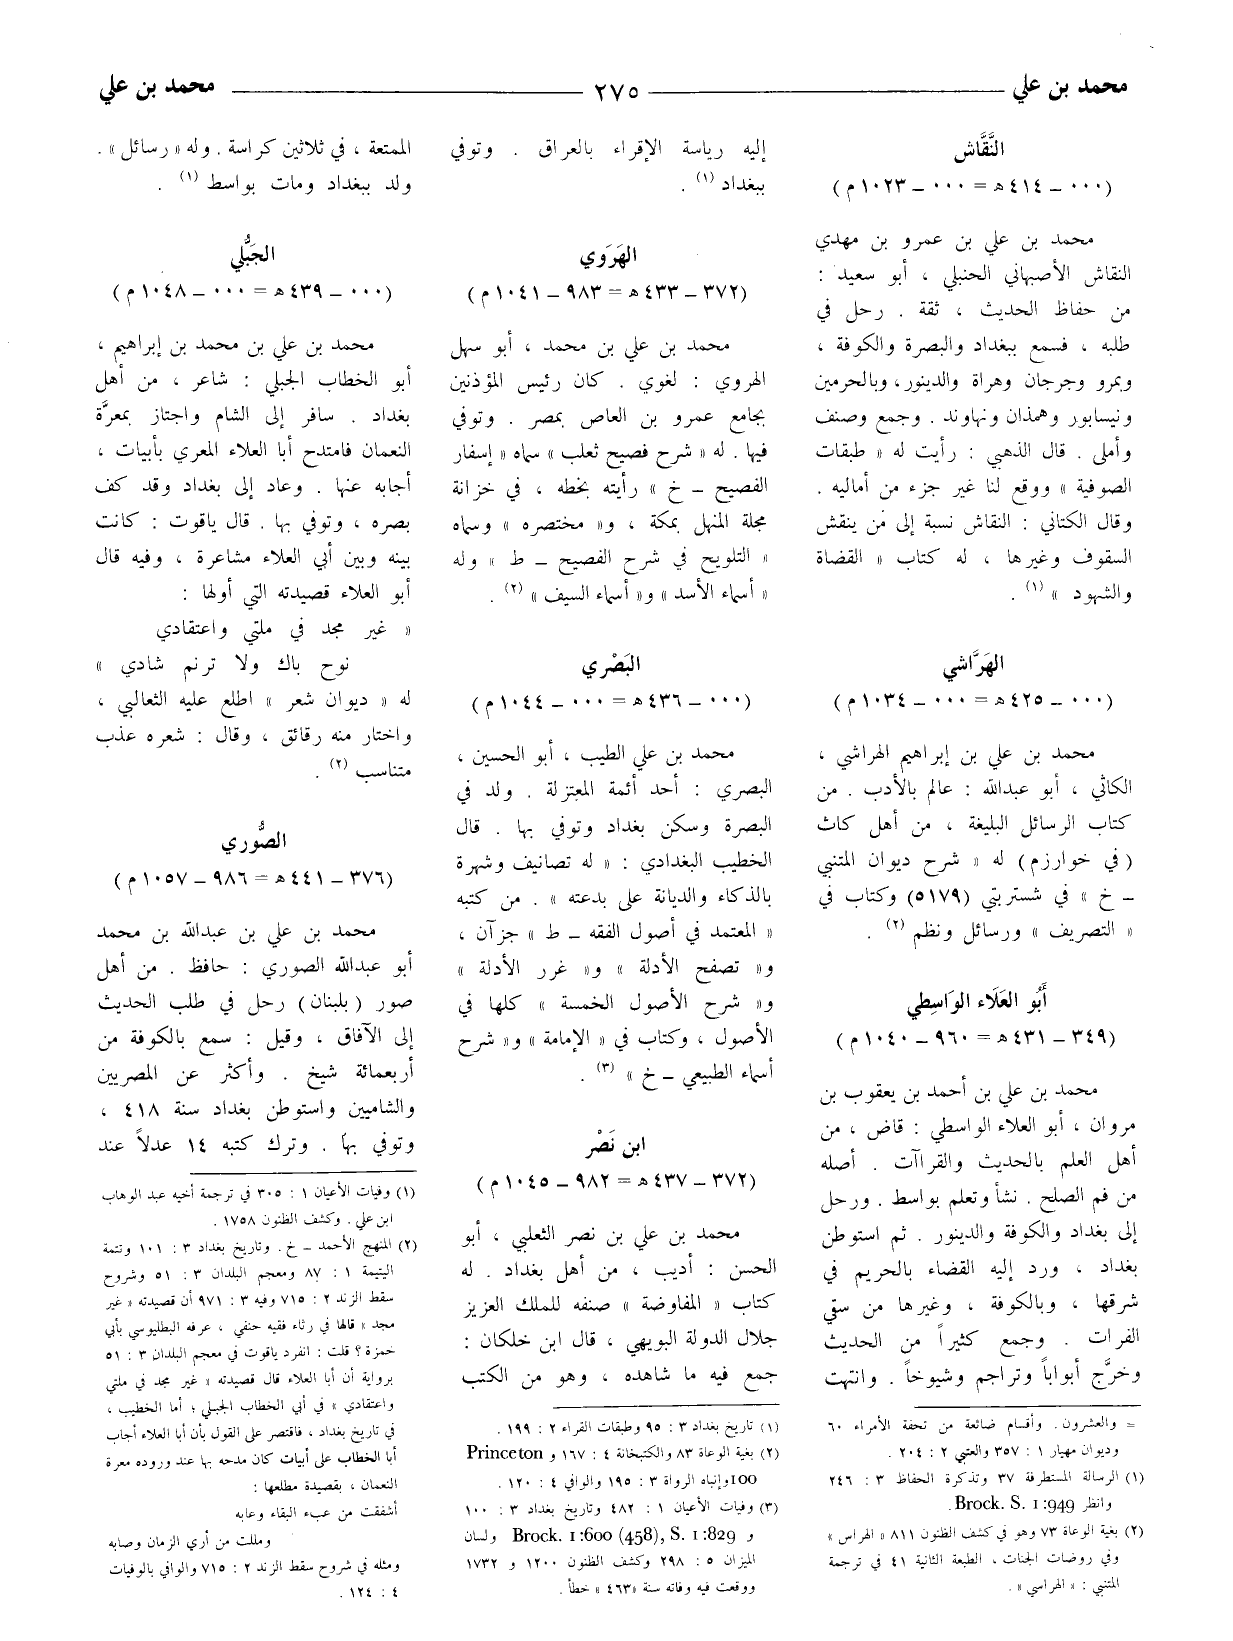 محمد بن علي
٢٧٥
محمد بن علي
النَّقَّاش
(٠٠٠ ـ ٤١٤ هـ = ٠٠٠ ـ ١٠٢٣ م)
محمد بن علي بن عمرو بن مهدي
النقاش الأصبهاني الحنبلي ، أبو سعيد :
من حفاظ الحديث ، ثقة . رحل في
طلبه ، فسمع ببغداد والبصرة والكوفة ،
وبمرو وجرجان وهراة والدينور، وبالحرمين
ونيسابور وهمذان ونهاوند . وجمع وصنف
وأملى . قال الذهبي : رأيت له « طبقات
الصوفية » ووقع لنا غير جزء من أماليه .
وقال الكتاني : النقاش نسبة إلى مَن ينقش
السقوف وغيرها ، له كتاب « القضاة
والشهود » (١) .
الهَرَّاشي
(٠٠٠ ـ ٤٢٥ هـ = ٠٠٠ ـ ١٠٣٤ م)
محمد بن علي بن إبراهيم الهراشي ،
الكاثي ، أبو عبدالله : عالم بالأدب . من
كتاب الرسائل البليغة ، من أهل كاث
(في خوارزم) له « شرح ديوان المتنبي
ـ خ » في شستربتي (٥١٧٩) وكتاب في
« التصريف » ورسائل ونظم (٢) .
أَبُو العَلَاء الوَاسِطي
(٣٤٩ ـ ٤٣١ هـ = ٩٦٠ ـ ١٠٤٠ م)
محمد بن علي بن أحمد بن يعقوب بن
مروان ، أبو العلاء الواسطي : قاض ، من
أهل العلم بالحديث والقراآت . أصله
من فم الصلح . نشأ وتعلم بواسط . ورحل
إلى بغداد والكوفة والدينور . ثم استوطن
بغداد ، ورد إليه القضاء بالحريم في
شرقها ، وبالكوفة ، وغيرها من سقي
الفرات . وجمع كثيراً من الحديث
وخرَّج أبواباً وتراجم وشيوخاً . وانتهت
= والعشرون . وأقسام ضائعة من تحفة الأمراء ٦٠
وديوان مهيار ١ : ٣٥٧ والعتبي ٢ : ٢٠٤ .
(١) الرسالة المستطرفة ٣٧ وتذكرة الحفاظ ٣ : ٢٤٦
وانظر Brock. S. 1 :949 .
(٢) بغية الوعاة ٧٣ وهو في كشف الظنون ٨١١ « الهراس »
وفي روضات الجنات ، الطبعة الثانية ٤١ في ترجمة
المتنبي : « الهراسي » .
إليه رياسة الإقراء بالعراق . وتوفي
ببغداد (١) .
الهَرَوي
(٣٧٢ ـ ٤٣٣ هـ = ٩٨٣ ـ ١٠٤١ م)
محمد بن علي بن محمد ، أبو سهل
الهروي : لغوي . كان رئيس المؤذنين
بجامع عمرو بن العاص بمصر . وتوفي
فيها . له « شرح فصيح ثعلب » سماه « إسفار
الفصيح ـ خ » رأيته بخطه ، في خزانة
مجلة المنهل بمكة ، و« مختصره » وسماه
« التلويح في شرح الفصيح ـ ط » وله
« أسماء الأسد » و« أسماء السيف » (٢) .
البَصْري
(٠٠٠ ـ ٤٣٦ هـ = ٠٠٠ ـ ١٠٤٤ م)
محمد بن علي الطيب ، أبو الحسين ،
البصري : أحد أئمة المعتزلة . ولد في
البصرة وسكن بغداد وتوفي بها . قال
الخطيب البغدادي : « له تصانيف وشهرة
بالذكاء والديانة على بدعته » . من كتبه
« المعتمد في أصول الفقه ـ ط » جزآن ،
و« تصفح الأدلة » و« غرر الأدلة »
و« شرح الأصول الخمسة » كلها في
الأصول ، وكتاب في « الإمامة » و« شرح
أسماء الطبيعي ـ خ » (٣) .
ابن نَصْر
(٣٧٢ ـ ٤٣٧ هـ = ٩٨٢ ـ ١٠٤٥ م)
محمد بن علي بن نصر الثعلبي ، أبو
الحسن : أديب ، من أهل بغداد . له
كتاب « المفاوضة » صنفه للملك العزيز
جلال الدولة البويهي ، قال ابن خلكان :
جمع فيه ما شاهده ، وهو من الكتب
(١) تاريخ بغداد ٣ : ٩٥ وطبقات القراء ٢ : ١٩٩ .
(٢) بغية الوعاة ٨٣ والكتبخانة ٤ : ١٦٧ و Princeton
100 وإنباه الرواة ٣ : ١٩٥ والوافي ٤ : ١٢٠ .
(٣) وفيات الأعيان ١ : ٤٨٢ وتاريخ بغداد ٣ : ١٠٠
و Brock. 1 :600 (458), S. 1 :829 ولسان
الميزان ٥ : ٢٩٨ وكشف الظنون ١٢٠٠ و ١٧٣٢
ووقعت فيه وفاته سنة «٤٦٣ » خطأ .
الممتعة ، في ثلاثين كراسة . وله « رسائل » .
ولد ببغداد ومات بواسط (١) .
الجَبُّلي
(٠٠٠ ـ ٤٣٩ هـ = ٠٠٠ ـ ١٠٤٨ م)
محمد بن علي بن محمد بن إبراهيم ،
أبو الخطاب الجبلي : شاعر ، من أهل
بغداد . سافر إلى الشام واجتاز بمعرَّة
النعمان فامتدح أبا العلاء المعري بأبيات ،
أجابه عنها . وعاد إلى بغداد وقد كف
بصره ، وتوفي بها . قال ياقوت : كانت
بينه وبين أبي العلاء مشاعرة ، وفيه قال
أبو العلاء قصيدته التي أولها :
« غير مجد في ملتي واعتقادي
نوح باك ولا ترنم شادي »
له « ديوان شعر » اطلع عليه الثعالبي ،
واختار منه رقائق ، وقال : شعره عذب
متناسب (٢) .
الصُّوري
(٣٧٦ ـ ٤٤١ هـ = ٩٨٦ ـ ١٠٥٧ م)
محمد بن علي بن عبدالله بن محمد
أبو عبدالله الصوري : حافظ . من أهل
صور (بلبنان) رحل في طلب الحديث
إلى الآفاق ، وقيل : سمع بالكوفة من
أربعمائة شيخ . وأكثر عن المصريين
والشاميين واستوطن بغداد سنة ٤١٨ ،
وتوفي بها . وترك كتبه ١٤ عدلاً عند
(١) وفيات الأعيان ١ : ٣٠٥ في ترجمة أخيه عبد الوهاب
ابن علي . وكشف الظنون ١٧٥٨ .
(٢) المنهج الأحمد ـ خ . وتاريخ بغداد ٣ : ١٠١ وتتمة
اليتيمة ١ : ٨٧ ومعجم البلدان ٣ : ٥١ وشروح
سقط الزند ٢ : ٧١٥ وفيه ٣ : ٩٧١ أن قصيدته « غير
مجد » قالها في رثاء فقيه حنفي ، عرفه البطليوسي بأبي
حمزة ؟ قلت : انفرد ياقوت في معجم البلدان ٣ : ٥١
برواية أن أبا العلاء قال قصيدته « غير مجد في ملتي
واعتقادي » في أبي الخطاب الجبلي ؛ أما الخطيب ،
في تاريخ بغداد ، فاقتصر على القول بأن أبا العلاء أجاب
أبا الخطاب على أبيات كان مدحه بها عند وروده معرة
النعمان ، بقصيدة مطلعها :
أشفقت من عبء البقاء وعابه
ومللت من أري الزمان وصابه
ومثله في شروح سقط الزند ٢ : ٧١٥ والوافي بالوفيات
٤ : ١٢٤ .